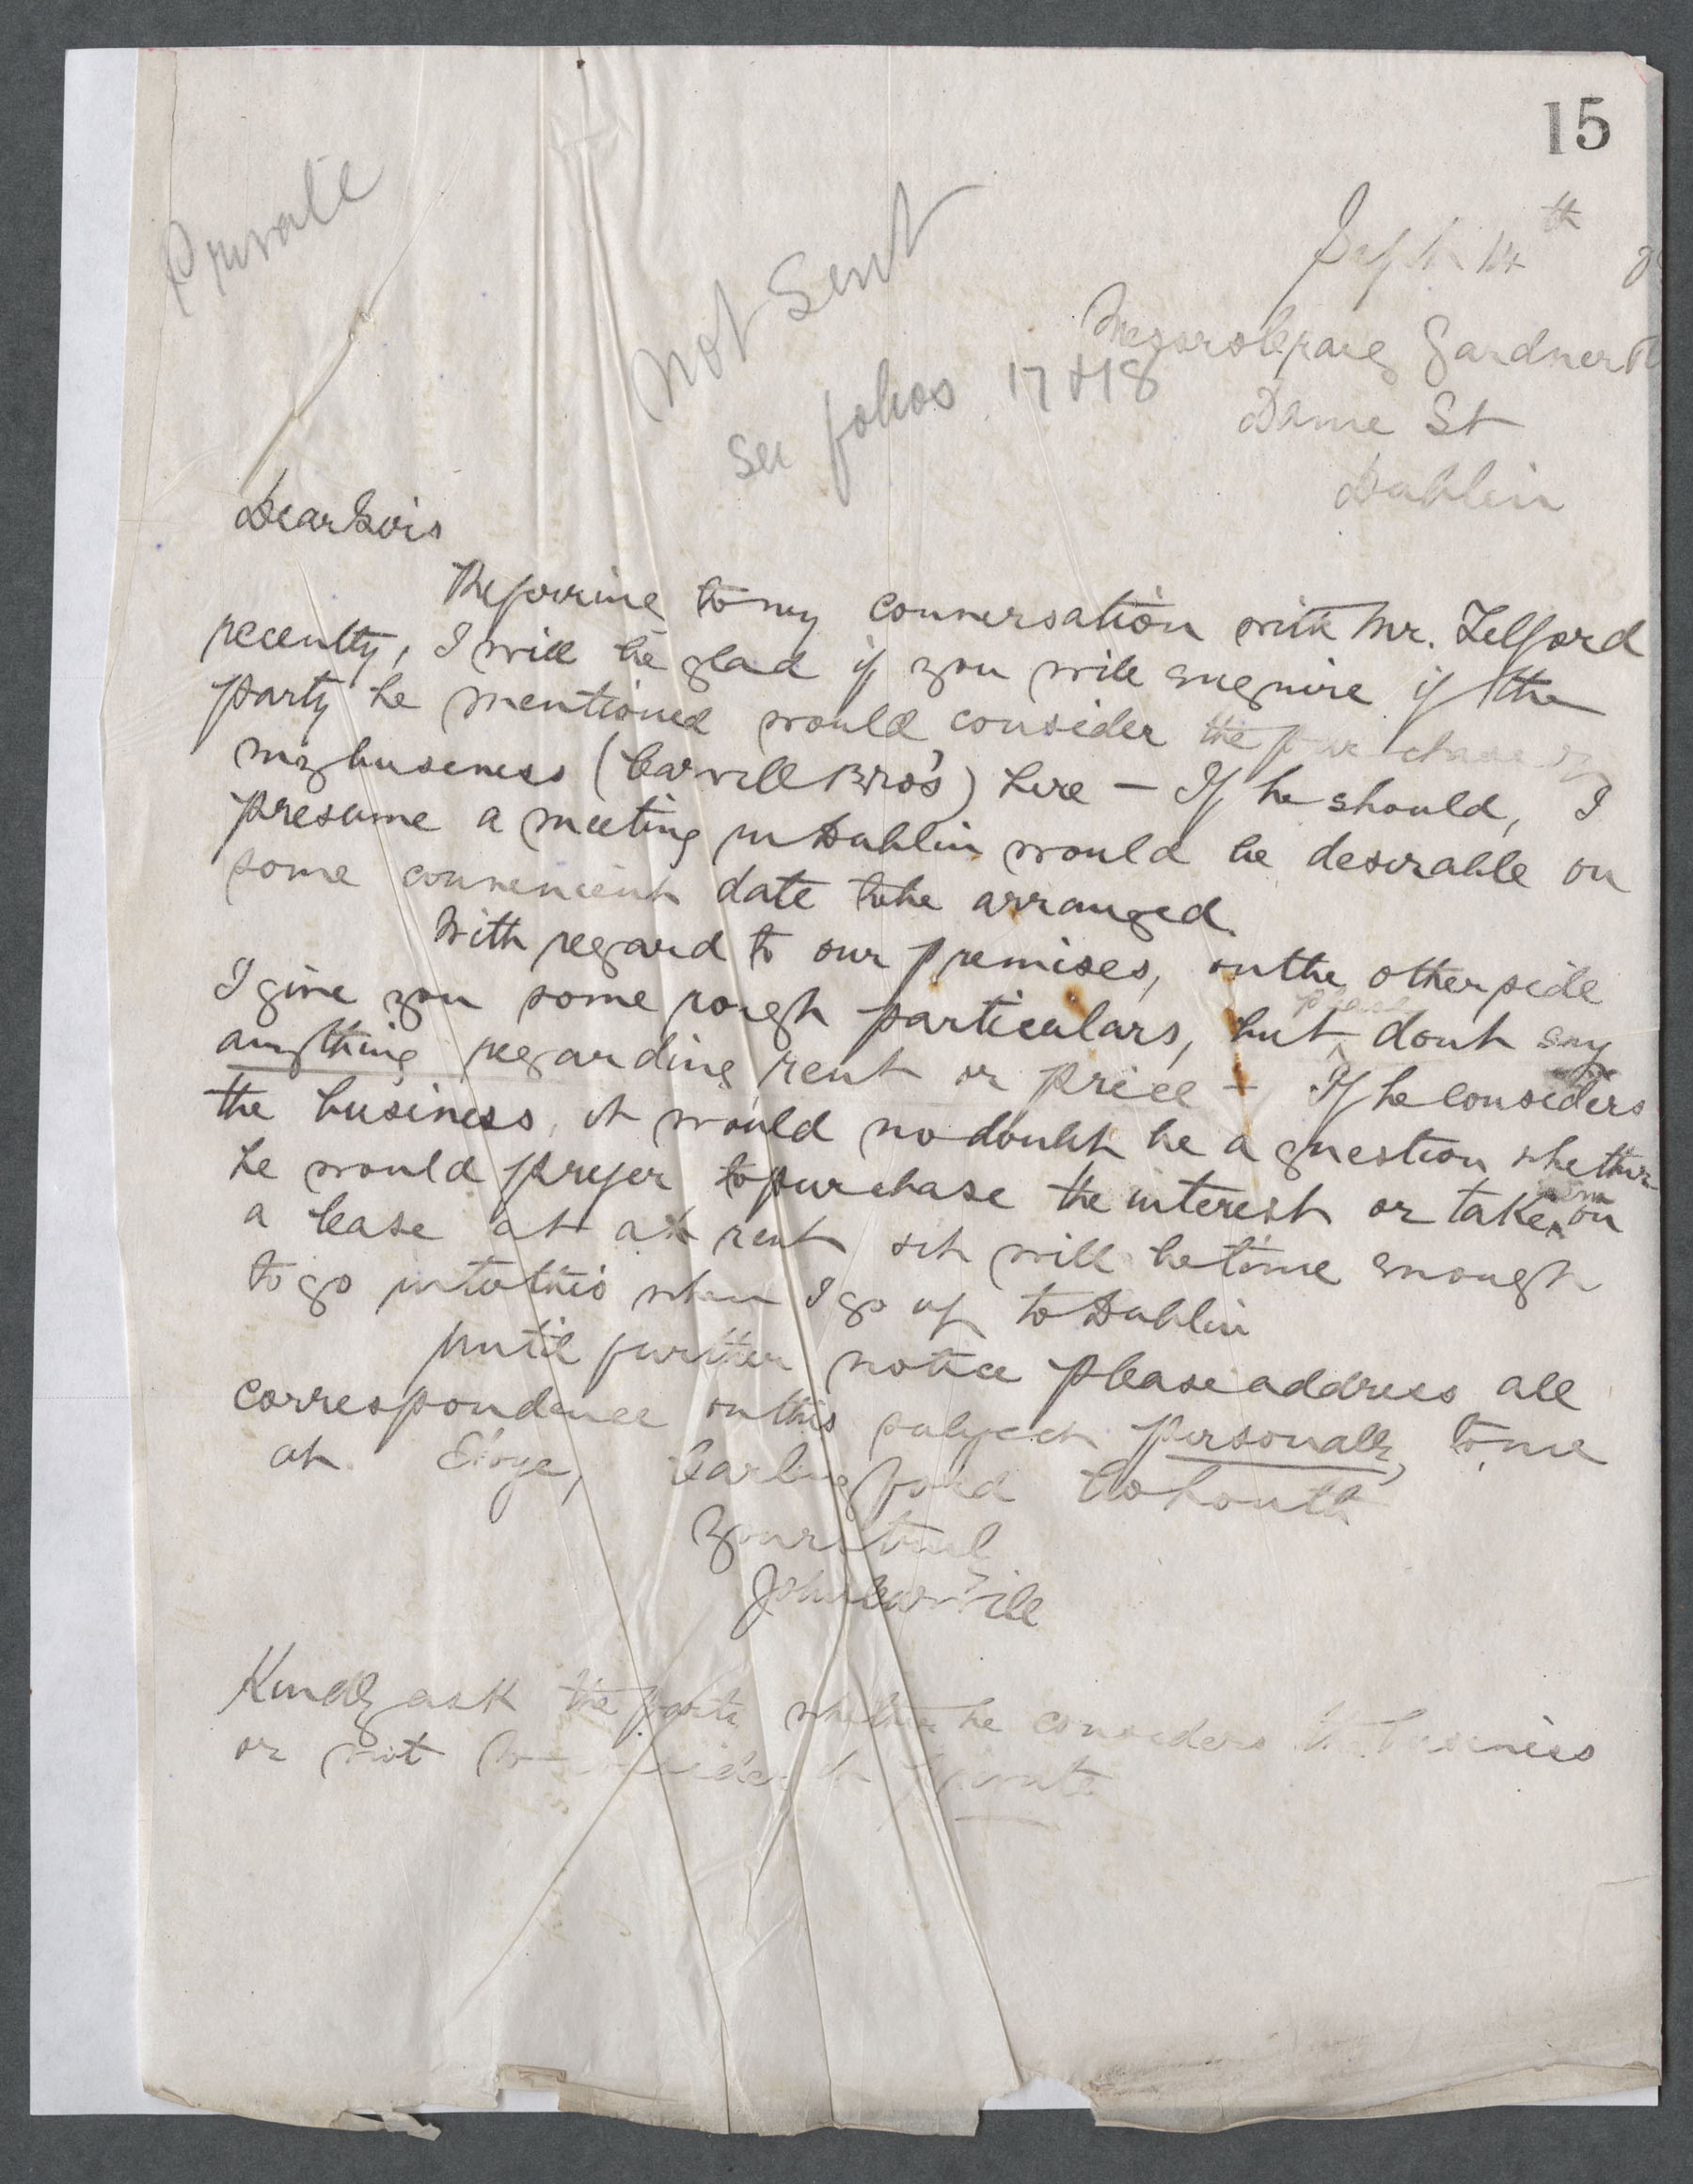 15
Private
Not Sent
See folios 17 & 18
Sept 14th
Messrs Craig Gardner &
Dame St
Dublin
Dear Sirs
Referring to my conversation with Mr. Telford
recently, I will be glad if you will enquire if the
party he mentioned would consider the purchase of
my business (Carvill Bro's) here — If he should, I
presume a meeting in Dublin would be desirable on
some convenient date to be arranged.
With regard to our premises, on the other side
I give you some rough particulars, but please dont say
anything regarding rent or price — If he considers
the business, it would no doubt be a question whether
he would prefer to purchase the interest or take on
a lease at a rent & it will be time enough
to go into this when I go up to Dublin
Until further notice please address all
correspondence on this subject personally to me
at Carlingford Co Louth
Yours truly
John Carvill
Kindly ask the party whether he considers the business
or not to consider it private